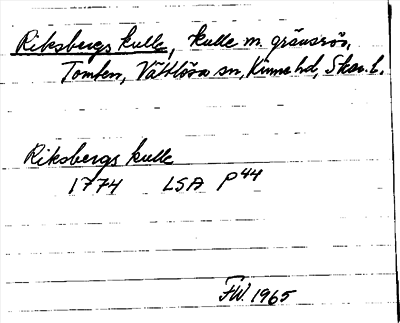 Riksbergs kulle, kulle m. gränsrös,
Tomten, Vättlösa sn, Kinne hd, Skar. l.
Riksbergs kulle
1774 LSA P44
FW. 1965